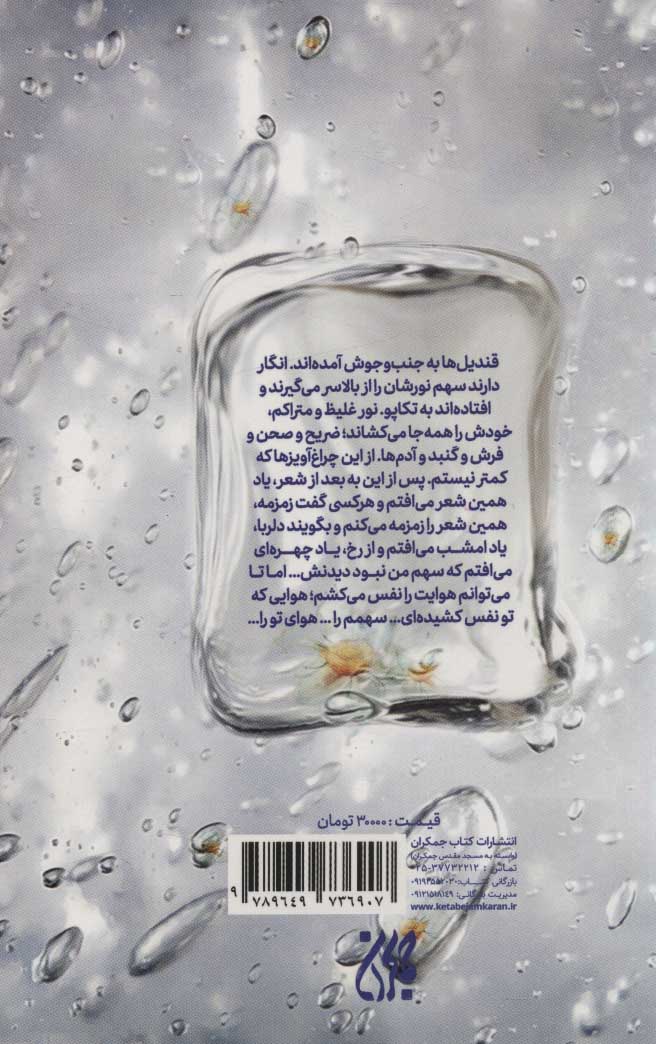 قندیل‌ها به جنب‌وجوش آمده‌اند. انگار
دارند سهم نورشان را از بالاسر می‌گیرند و
افتاده‌اند به تکاپو. نور غلیظ و متراکم،
خودش را همه‌جا می‌کشاند؛ ضریح و صحن و
فرش و گنبد و آدم‌ها. از این چراغ‌آویزها که
کمتر نیستم. پس از این به بعد از شعر، یاد
همین شعر می‌افتم و هرکسی گفت زمزمه،
همین شعر را زمزمه می‌کنم و بگویند دلربا،
یاد امشب می‌افتم و از رخ، یاد چهره‌ای
می‌افتم که سهم من نبود دیدنش... اما تا
می‌توانم هوایت را نفس می‌کشم؛ هوایی که
تو نفس کشیده‌ای... سهمم را... هوای تو را...
قیمت: ۳۰۰۰۰ تومان
انتشارات کتاب جمکران
(وابسته به مسجد مقدس جمکران)
تماس : ۰۲۵-۳۷۷۳۲۲۱۲
بازرگانی کتاب:
مدیریت بازرگانی: ۰۹۱۲۱۵۱۸۱۴۹
www.ketabejamkaran.ir
۹ ۷۸۹۶۴۹ ۷۳۶۹۰۷
جمکران